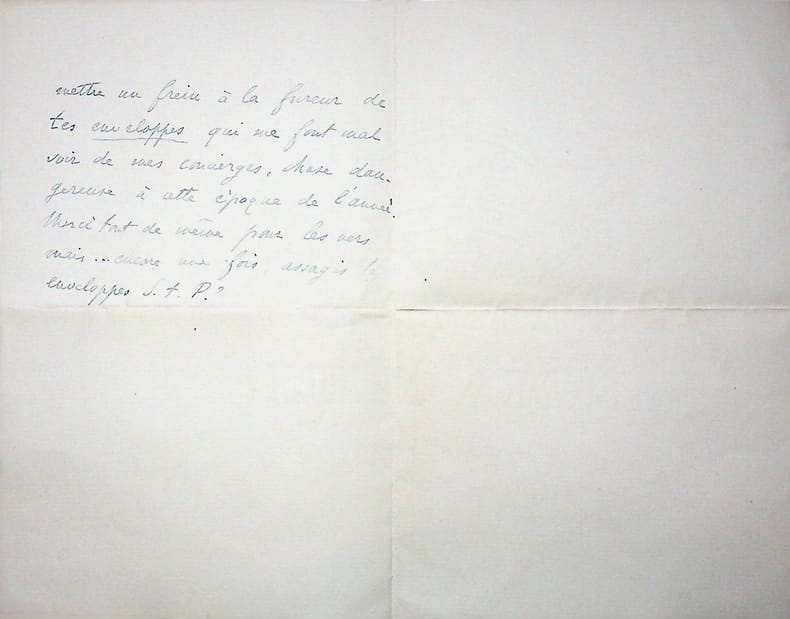 mettre un frein à la fureur de
tes enveloppes qui me font mal
voir de mes concierges, chose dan-
gereuse à cette époque de l'année.
Merci tout de même pour les vers
mais ... encore une fois, assagis tes
enveloppes S. t. P. ?